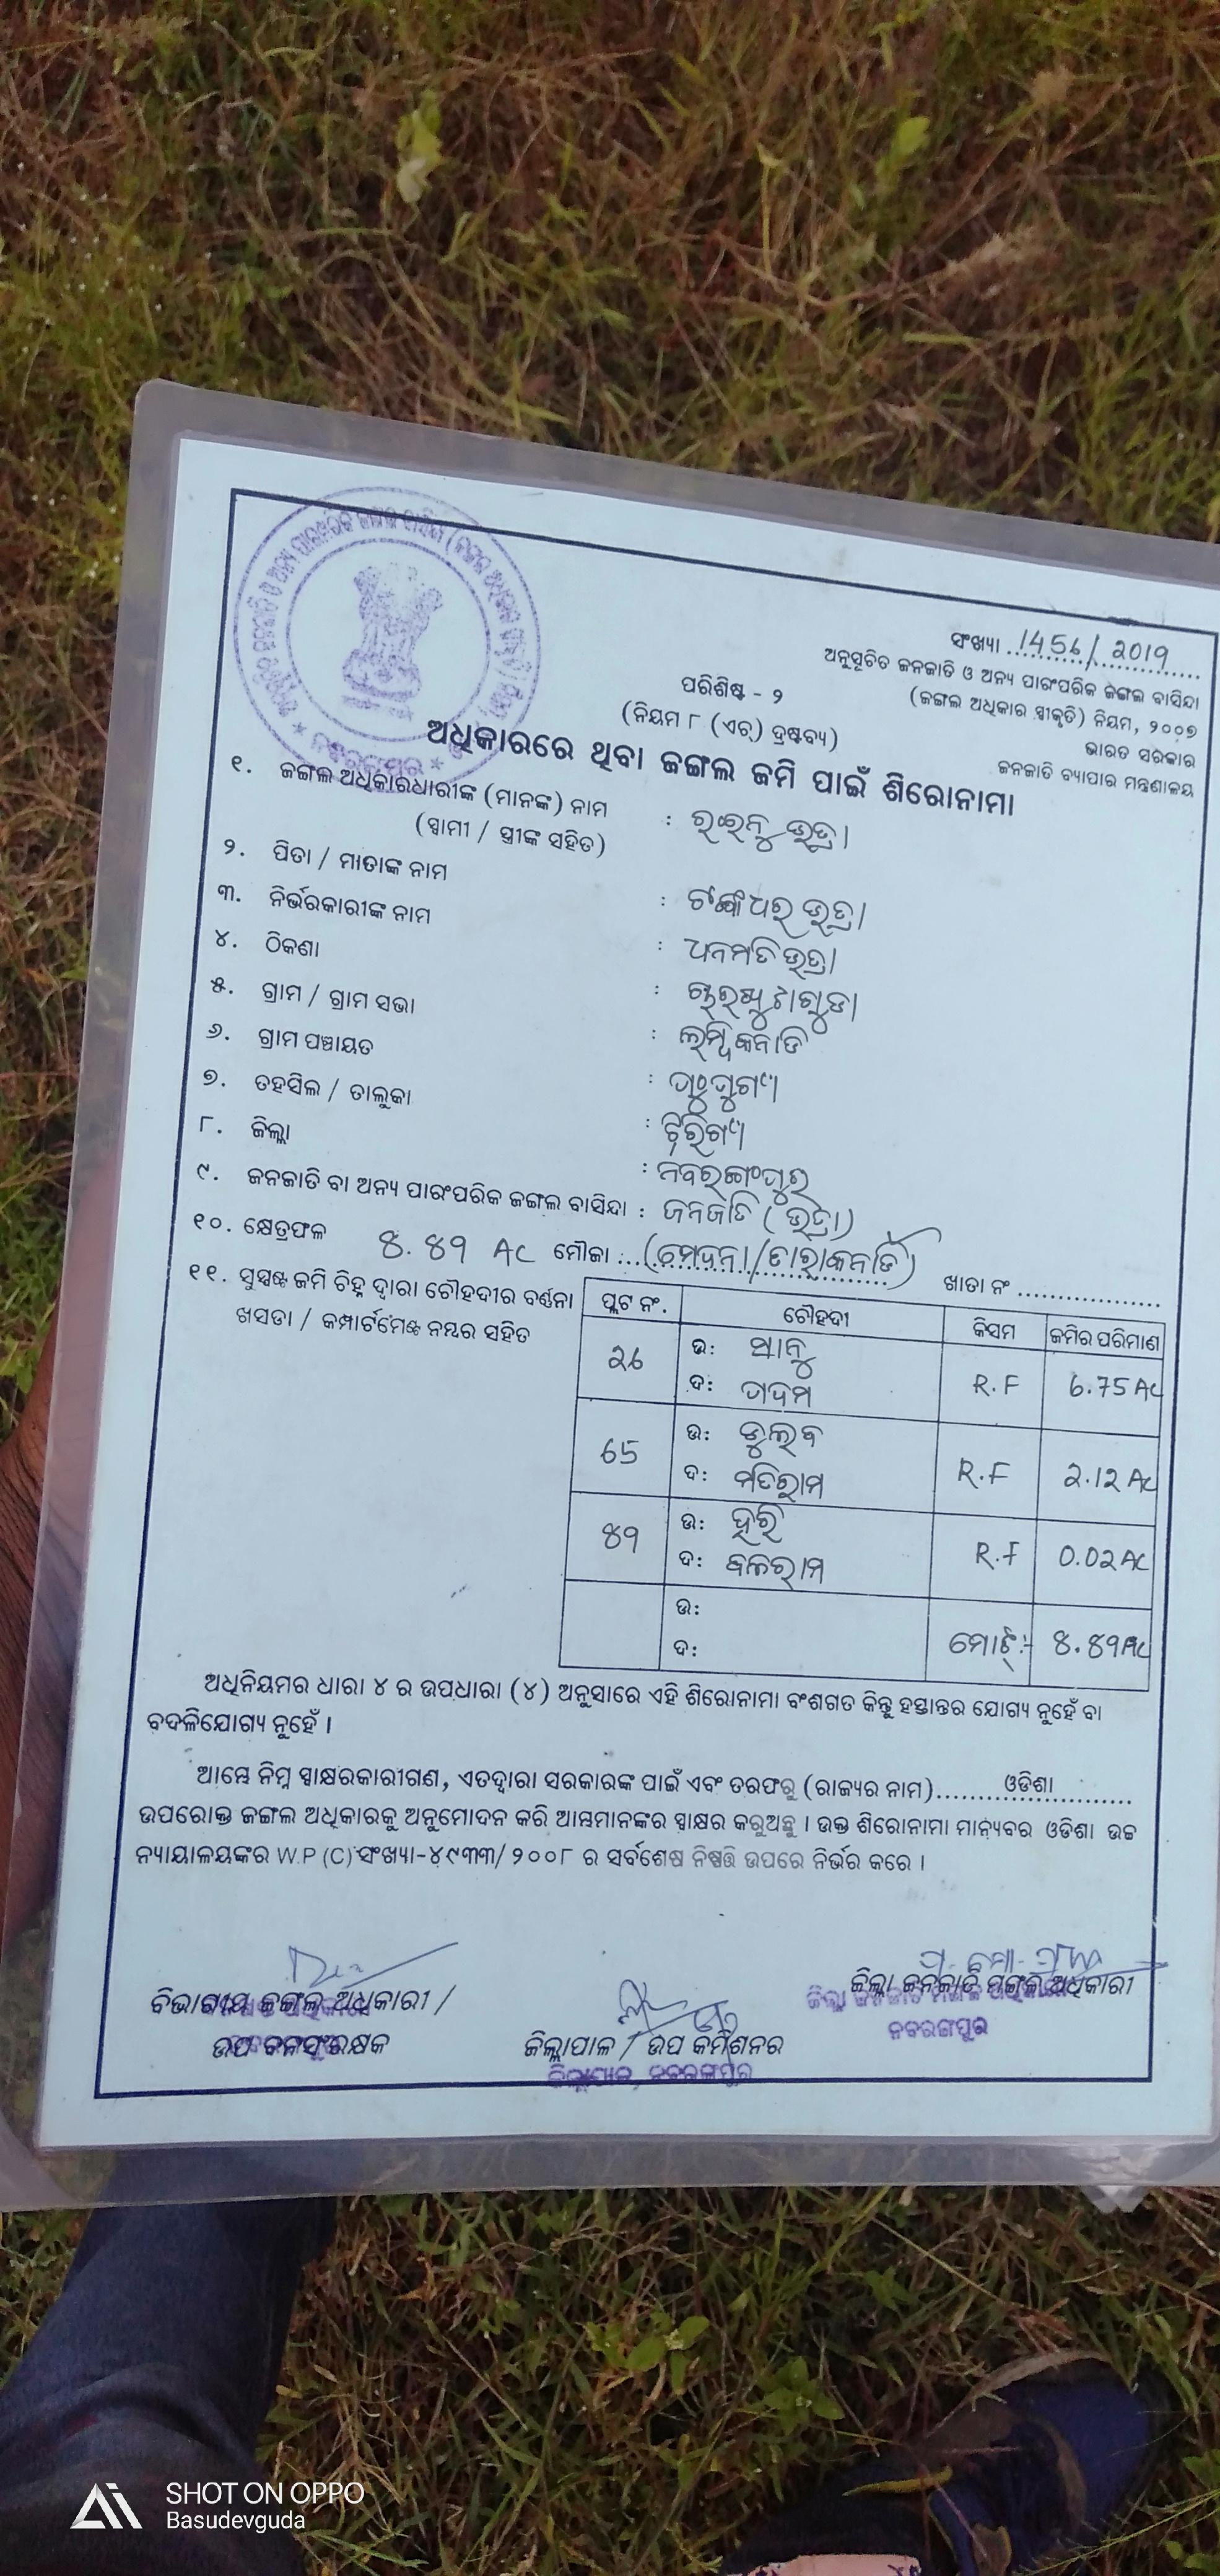 ସଂଖ୍ୟା 1456/2019
ଅନୁସୂଚିତ ଜନଜାତି ଓ ଅନ୍ୟ ପାରଂପରିକ ଜଙ୍ଗଲ ବାସିନ୍ଦା
(ଜଙ୍ଗଲ ଅଧିକାର ସ୍ୱୀକୃତି) ନିୟମ, ୨୦୦୭
ଭାରତ ସରକାର
ଜନଜାତି ବ୍ୟାପାର ମନ୍ତ୍ରଣାଳୟ
ପରିଶିଷ୍ଟ - ୨
(ନିୟମ ୮ (ଏଚ୍) ଦ୍ରଷ୍ଟବ୍ୟ)
ଅଧିକାରରେ ଥିବା ଜଙ୍ଗଲ ଜମି ପାଇଁ ଶିରୋନାମା
୧. ଜଙ୍ଗଲ ଅଧିକାରଧାରୀଙ୍କ (ମାନଙ୍କ) ନାମ : ଭତ୍ରା
(ସ୍ୱାମୀ / ସ୍ତ୍ରୀଙ୍କ ସହିତ)
୨. ପିତା / ମାତାଙ୍କ ନାମ : ଟଙ୍କଧର ଭତ୍ରା
୩. ନିର୍ଭରକାରୀଙ୍କ ନାମ : ଧନମତି ଭତ୍ରା
୪. ଠିକଣା :
୫. ଗ୍ରାମ / ଗ୍ରାମ ସଭା :
୬. ଗ୍ରାମ ପଞ୍ଚାୟତ :
୭. ତହସିଲ / ତାଲୁକା :
୮. ଜିଲ୍ଲା : ନବରଙ୍ଗପୁର
୯. ଜନଜାତି ବା ଅନ୍ୟ ପାରଂପରିକ ଜଙ୍ଗଲ ବାସିନ୍ଦା : ଜନଜାତି (ଭତ୍ରା)
୧୦. କ୍ଷେତ୍ରଫଳ 8.89 AC ମୌଜା : ଖାତା ନଂ
୧୧. ସୁସ୍ପଷ୍ଟ ଜମି ଚିହ୍ନ ଦ୍ୱାରା ଚୌହଦୀର ବର୍ଣ୍ଣନା
ଖସଡା / କମ୍ପାର୍ଟମେଣ୍ଟ ନମ୍ବର ସହିତ
ପ୍ଲଟ ନଂ. ଚୌହଦୀ କିସମ ଜମିର ପରିମାଣ
26 ଉ: ଦ: ପଦମ R.F 6.75 AC
65 ଉ: ଦ: ମତିରାମ R.F 2.12 AC
89 ଉ: ହରି ଦ: ବଳରାମ R.F 0.02 AC
ଉ: ଦ: ମୋଟ୍:- 8.89 AC
ଅଧିନିୟମର ଧାରା ୪ ର ଉପଧାରା (୪) ଅନୁସାରେ ଏହି ଶିରୋନାମା ବଂଶଗତ କିନ୍ତୁ ହସ୍ତାନ୍ତର ଯୋଗ୍ୟ ନୁହେଁ ବା
ବଦଳିଯୋଗ୍ୟ ନୁହେଁ ।
ଆମ୍ଭେ ନିମ୍ନ ସ୍ୱାକ୍ଷରକାରୀଗଣ, ଏତଦ୍ୱାରା ସରକାରଙ୍କ ପାଇଁ ଏବଂ ତରଫରୁ (ରାଜ୍ୟର ନାମ) ଓଡିଶା
ଉପରୋକ୍ତ ଜଙ୍ଗଲ ଅଧିକାରକୁ ଅନୁମୋଦନ କରି ଆମ୍ଭମାନଙ୍କର ସ୍ୱାକ୍ଷର କରୁଅଛୁ । ଉକ୍ତ ଶିରୋନାମା ମାନ୍ୟବର ଓଡିଶା ଉଚ୍ଚ
ନ୍ୟାୟାଳୟଙ୍କର W.P (C) ସଂଖ୍ୟା-୪୯୩୩/୨୦୦୮ ର ସର୍ବଶେଷ ନିଷ୍ପତ୍ତି ଉପରେ ନିର୍ଭର କରେ ।
ବିଭାଗୀୟ ଜଙ୍ଗଲ ଅଧିକାରୀ /
ଉପ ବନସଂରକ୍ଷକ
ଜିଲ୍ଲାପାଳ / ଉପ କମିଶନର
ଜିଲ୍ଲାପାଳ, ନବରଙ୍ଗପୁର
ଜିଲ୍ଲା ଜନଜାତି ମଙ୍ଗଳ ଅଧିକାରୀ
ନବରଙ୍ଗପୁର
SHOT ON OPPO
Basudevguda